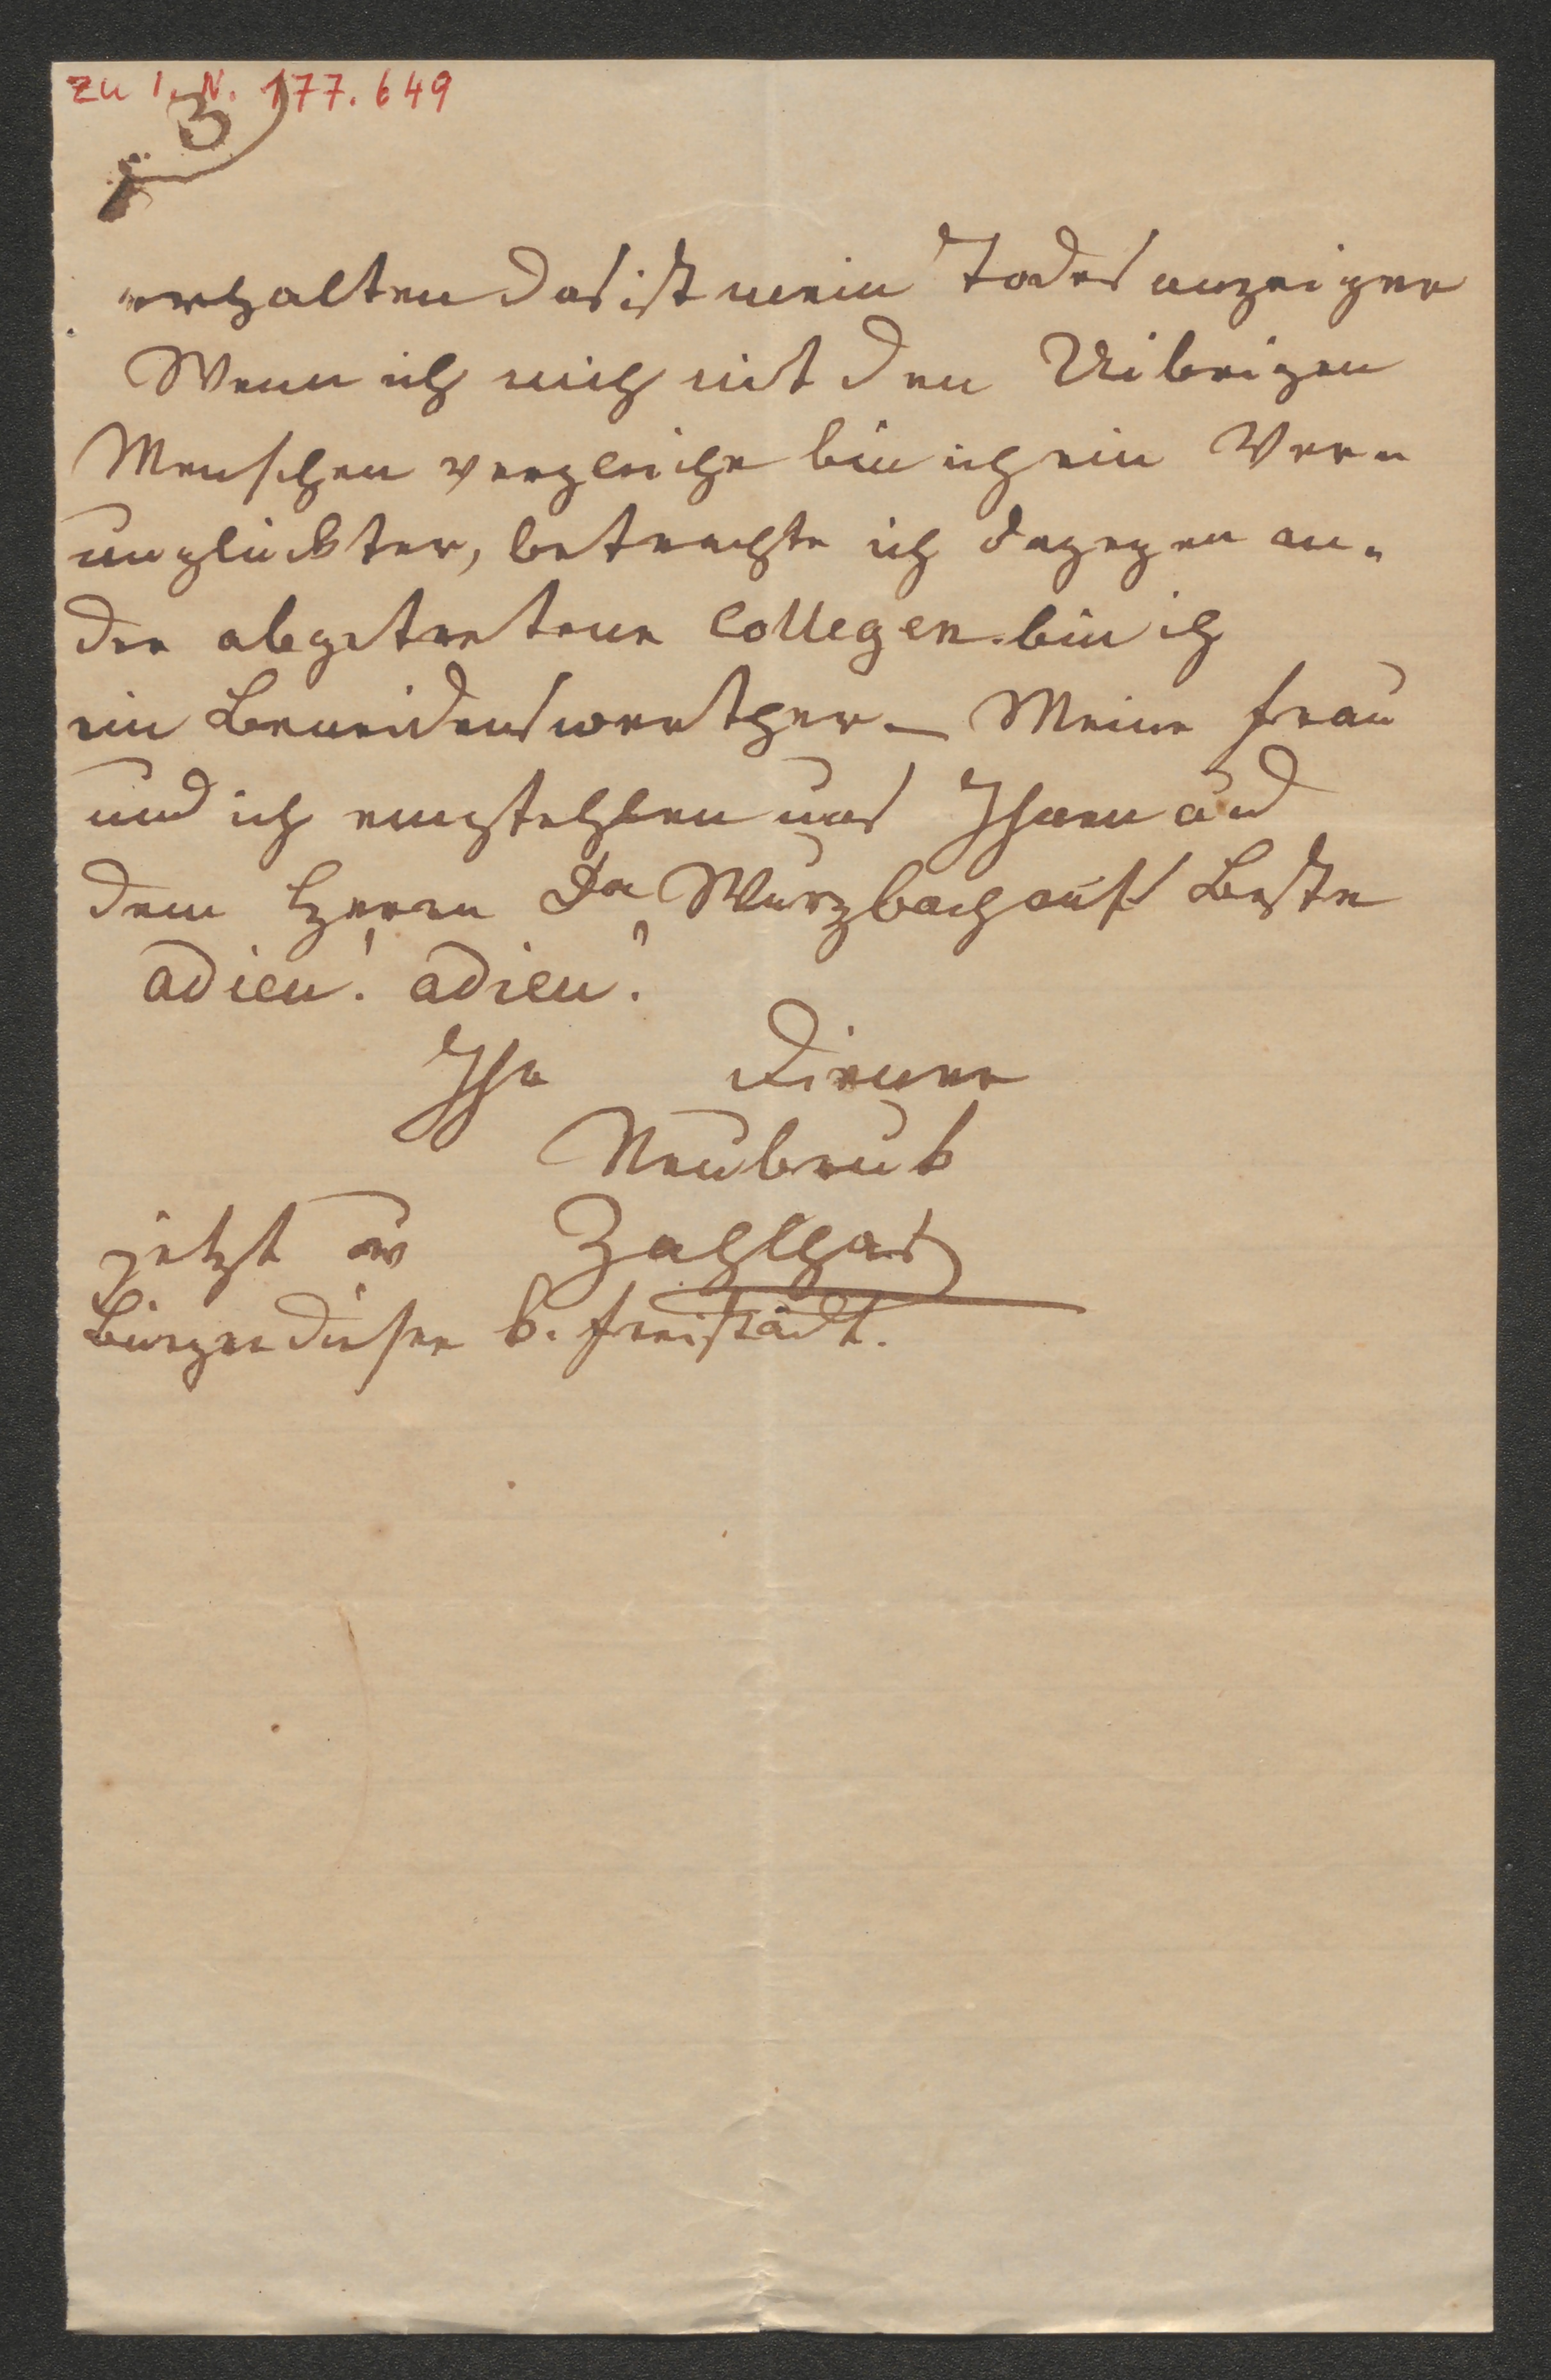 zu I. N. 177.649
3
erhalten das ist mein Todesanzeiger
Wenn ich mich mit den Uibrigen
Menschen vergleiche bin ich ein Ver-
unglückter, betrachte ich dagegen an-
dre abgetretene Collegen bin ich
ein Beneidenswerther – Meine Frau
und ich empfehlen uns Ihnen und
dem Herrn Dr Wurzbach aufs Beste
adieu! adieu!
Ihr Diener
Neubruk
jetzt
Bürger dieser k. Freistadt.